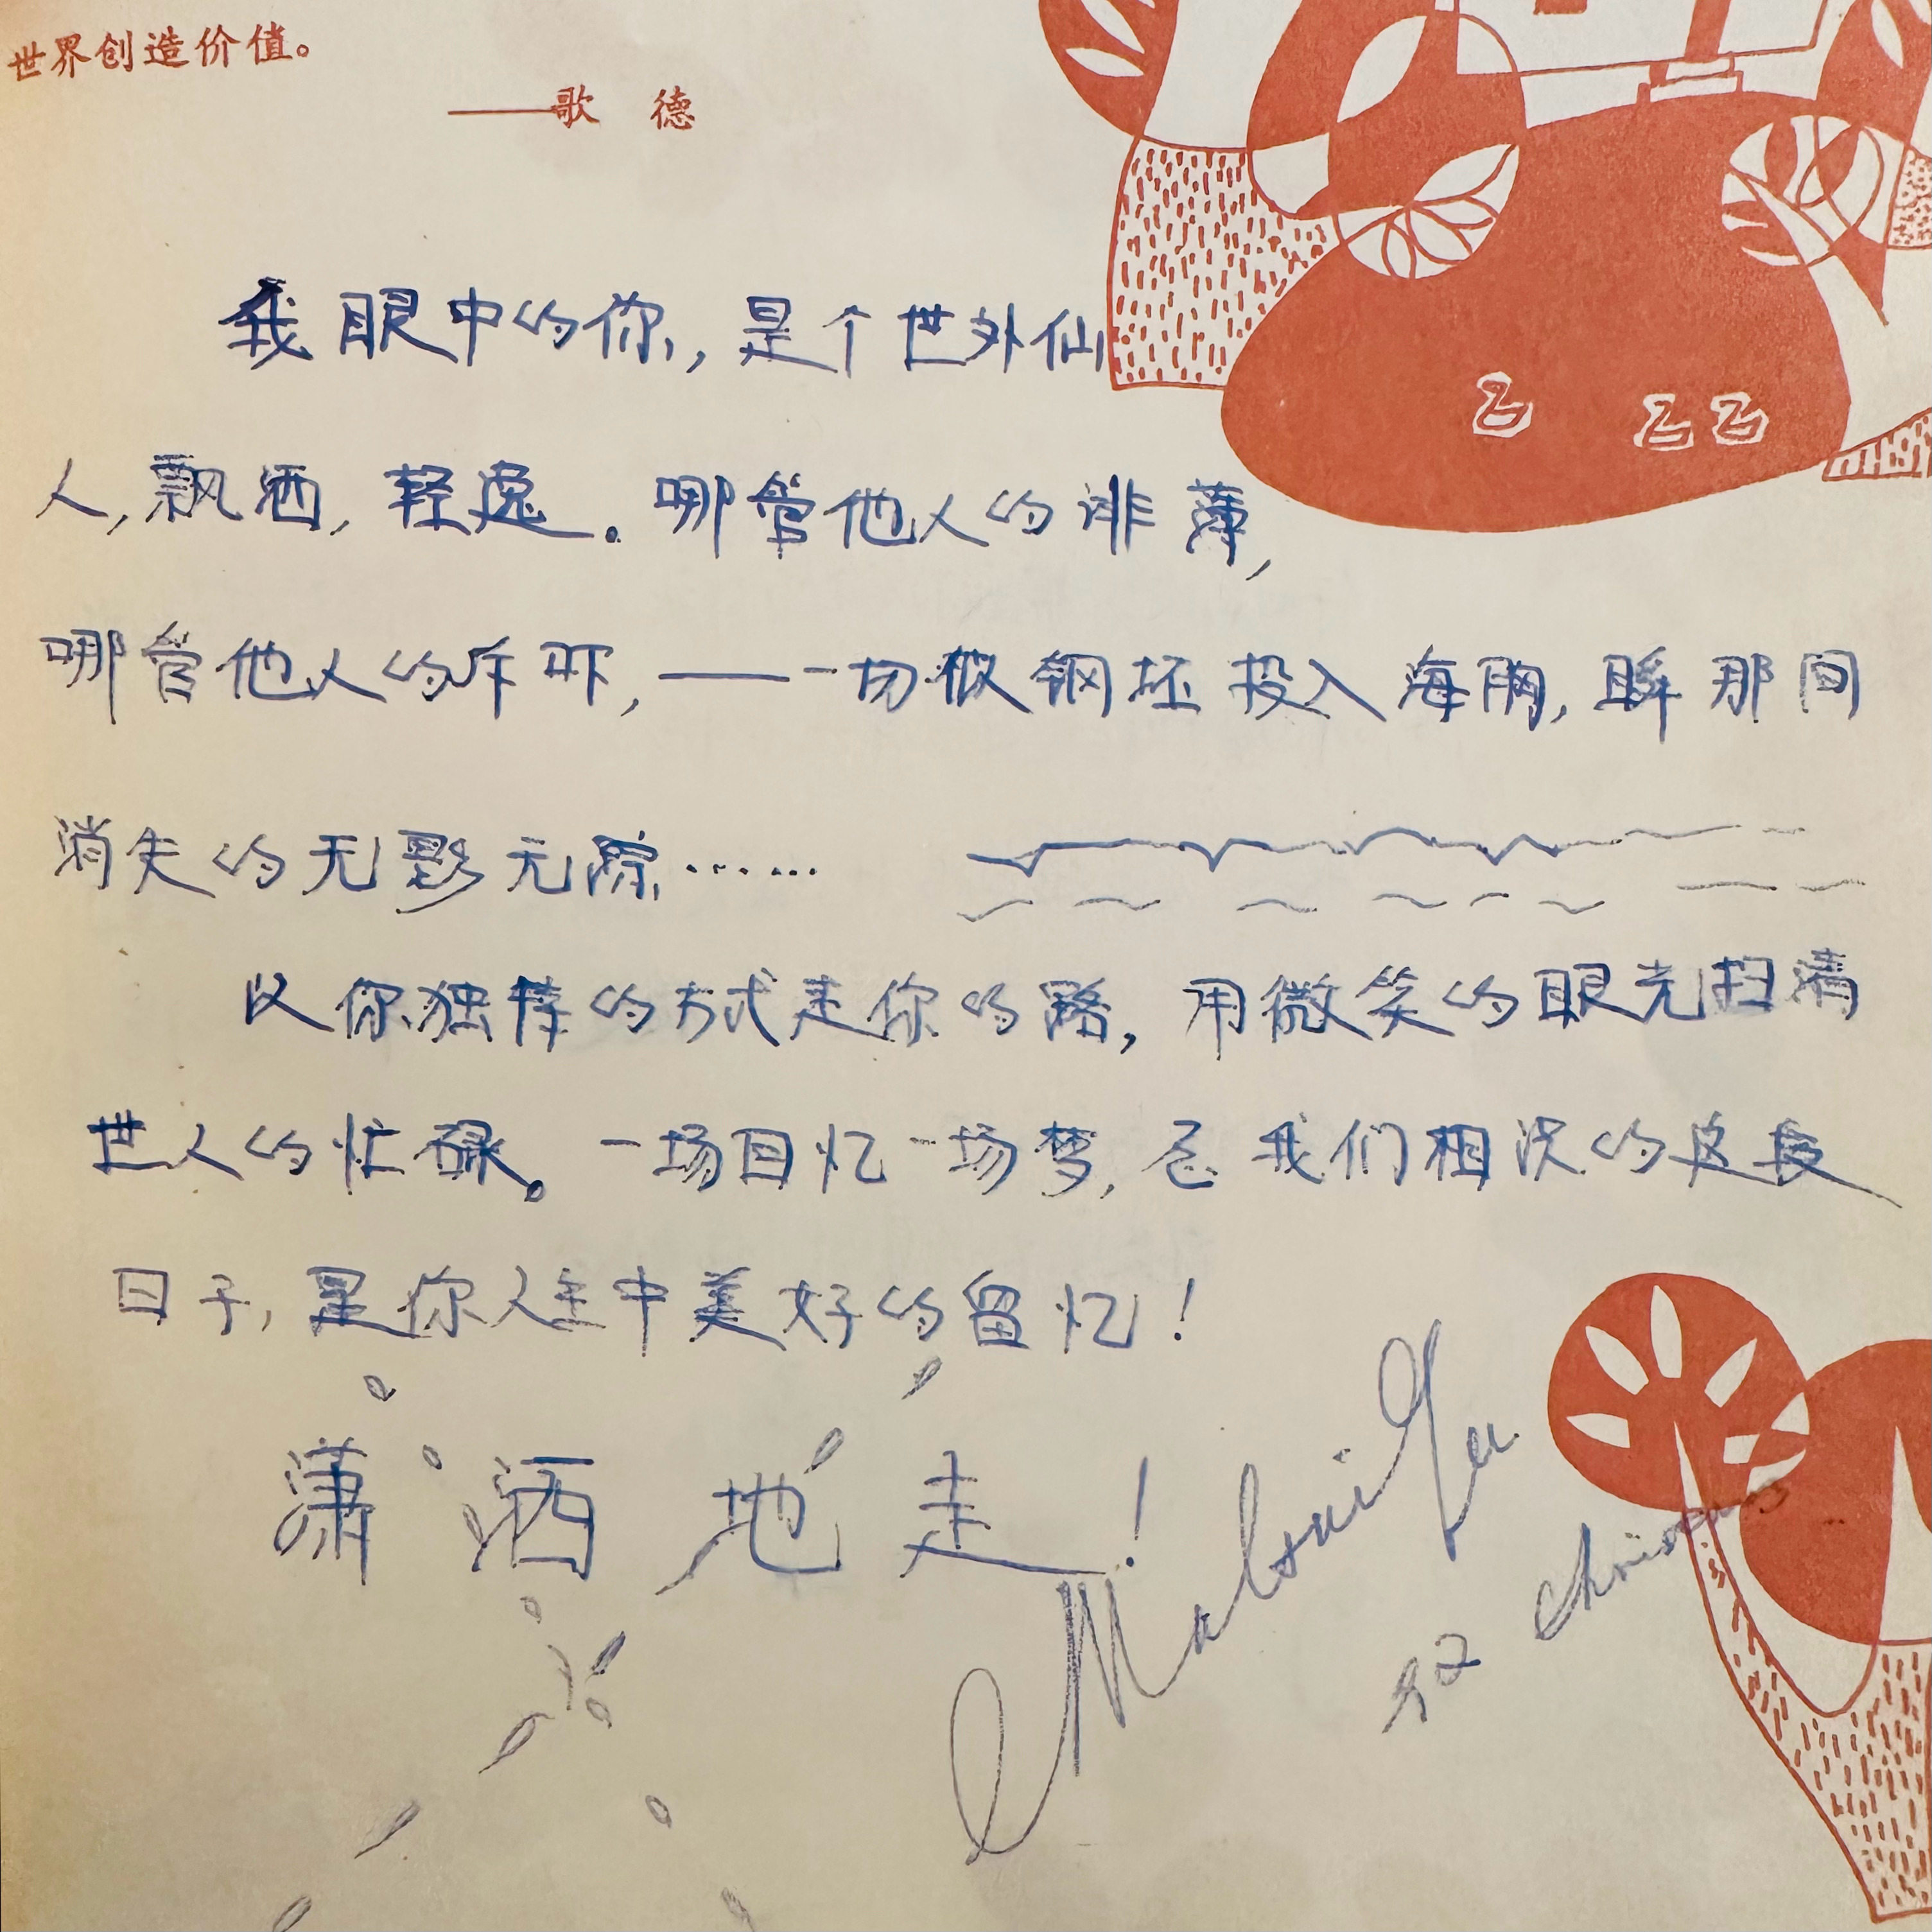 世界创造价值。
——歌 德
我眼中的你,是个世外仙
人,飘洒,轻逸。哪管他人的诽薄,
哪管他人的斥吓,——一切似钢坯投入海胸,瞬那间
消失的无影无踪……
以你独特的方式走你的路,用微笑的眼光扫清
世人的忙碌。一场回忆一场梦,愿我们相识的这段
日子,是你人生中美好的留忆!
潇洒地走!
92